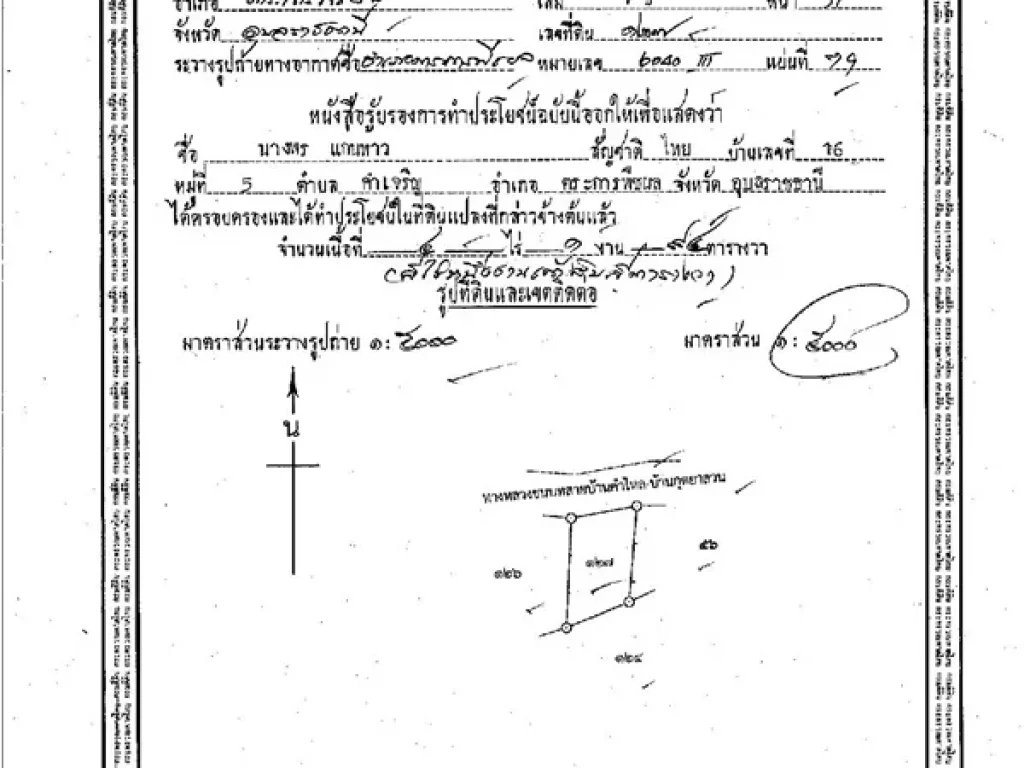 จังหวัด อุบลราชธานี เลขที่ดิน ๑๒๗
ระวางรูปถ่ายทางอากาศชื่อ อำเภอตระการพืชผล หมายเลข ๖๐๔๐ III แผ่นที่ ๖๑
หนังสือรับรองการทำประโยชน์ฉบับนี้ออกให้เพื่อแสดงว่า
ชื่อ นาง แถบทาว สัญชาติ ไทย บ้านเลขที่ 16
หมู่ที่ 5 ตำบล คำเจริญ อำเภอ ตระการพืชผล จังหวัด อุบลราชธานี
ได้ครอบครองและได้ทำประโยชน์ในที่ดินแปลงที่กล่าวข้างต้นแล้ว
จำนวนเนื้อที่ ๔ ไร่ ๑ งาน ๙๔ ตารางวา
(สี่ไร่หนึ่งงานเก้าสิบสี่ตารางวา)
รูปที่ดินและเขตติดต่อ
มาตราส่วนระวางรูปถ่าย ๑ : ๕๐๐๐ มาตราส่วน ๑ : ๕๐๐๐
น
ทางหลวงชนบทสายบ้านคำไหล-บ้านกุดยาลวน
๕๖
๑๒๖ ๑๒๗
๑๒๔